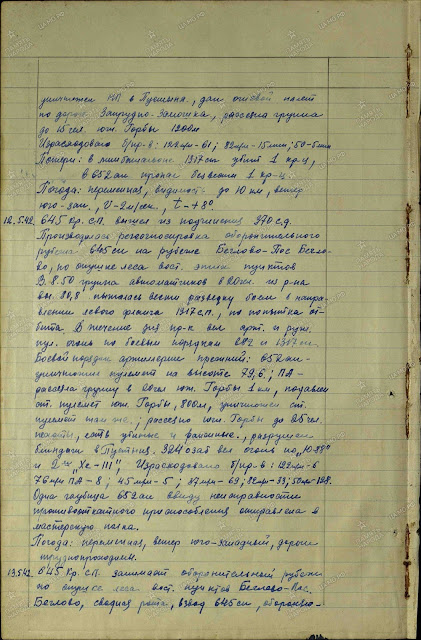 уничтожен НП в Пустыня, дан огневой налет
по дороге Запрудно-Замошка, рассеяна группа
до 15 чел. юж. Горбы 1200м
Израсходовано б/пр-в: 122мм-61; 82мм-15 мин; 50-5 мин
Потери: в минбатальоне 1317 сп убит 1 кр-ц,
в 652 ап пропал без вести 1 кр-ц.
Погода: переменная, видимость до 10 км, ветер
юго-зап., V-2м/сек., t-+8°
12.5.42. 645 Кр. с.п. вышел из подчинения 370 с.д.
Производилась рекогносцировка оборонительного
рубежа 645 сп на рубеже Беглово-Пос. Бегло-
во, по опушке леса вост. этих пунктов
В 8.50 группа автоматчиков в 20 чел. из р-на
выс. 80,8 пыталась вести разведку боем в направ-
лении левого фланга 1317 с.п., но попытка от-
бита. В течение дня пр-к вел арт. и руж.
пул. огонь по боевым порядкам и 1317 сп.
Боевой порядок артиллерии прежний: 652 ап-
уничтожен пулемет на высоте 79,6; ПА-
рассеял группу в 20 чел юж. Горбы 1 км, подавлен
ст. пулемет юж. Горбы, 800м, уничтожен ст.
пулемет там же; рассеяно юж. Горбы до 25 чел.
пехоты, есть убитые и раненые., разрушен
блиндаж в Пустыня. 324 озад вел огонь по „Ю-88"
и 2-м „Хе-111", Израсходовано б/пр-в: 122мм-6
76мм ПА-8; 45мм-5; 37мм-69; 82мм-33; 50мм-128.
Одна гаубица 652 ап ввиду неисправности
противооткатного приспособления отправлена в
мастерскую полка.
Погода: переменная, ветер юго-западный, дороги
труднопроходимы.
13.5.42. 645 Кр. с.п. занимает оборонительный рубеж
по опушке леса вост. пунктов Беглово-Пос.
Беглово, сводная рота, взвод 645 сп, обороняю-